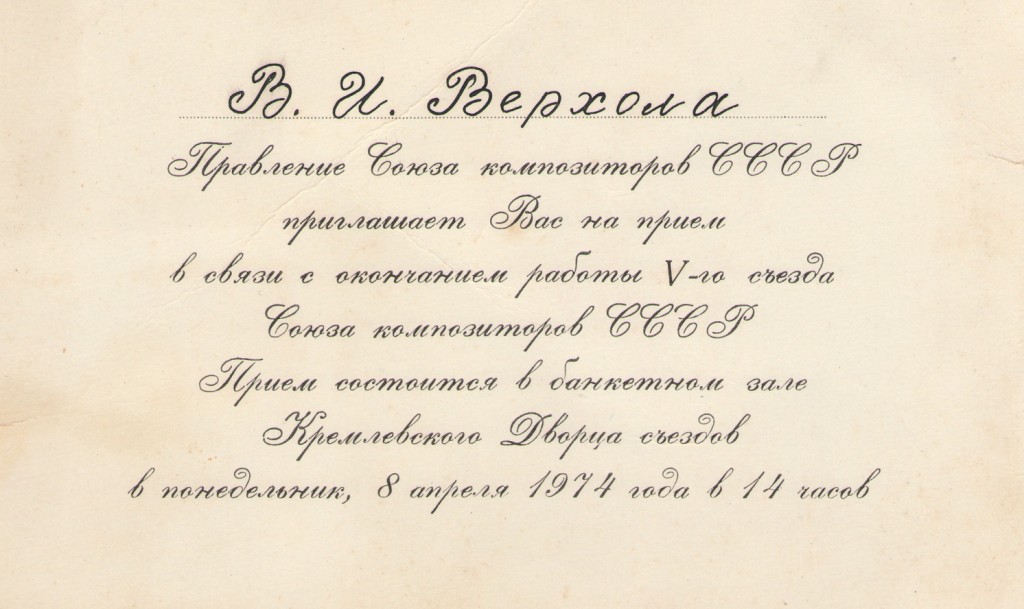 В. И. Верхола
Правление Союза композиторов СССР
приглашает Вас на прием
в связи с окончанием работы V-го съезда
Союза композиторов СССР
Прием состоится в банкетном зале
Кремлевского Дворца съездов
в понедельник, 8 апреля 1974 года в 14 часов